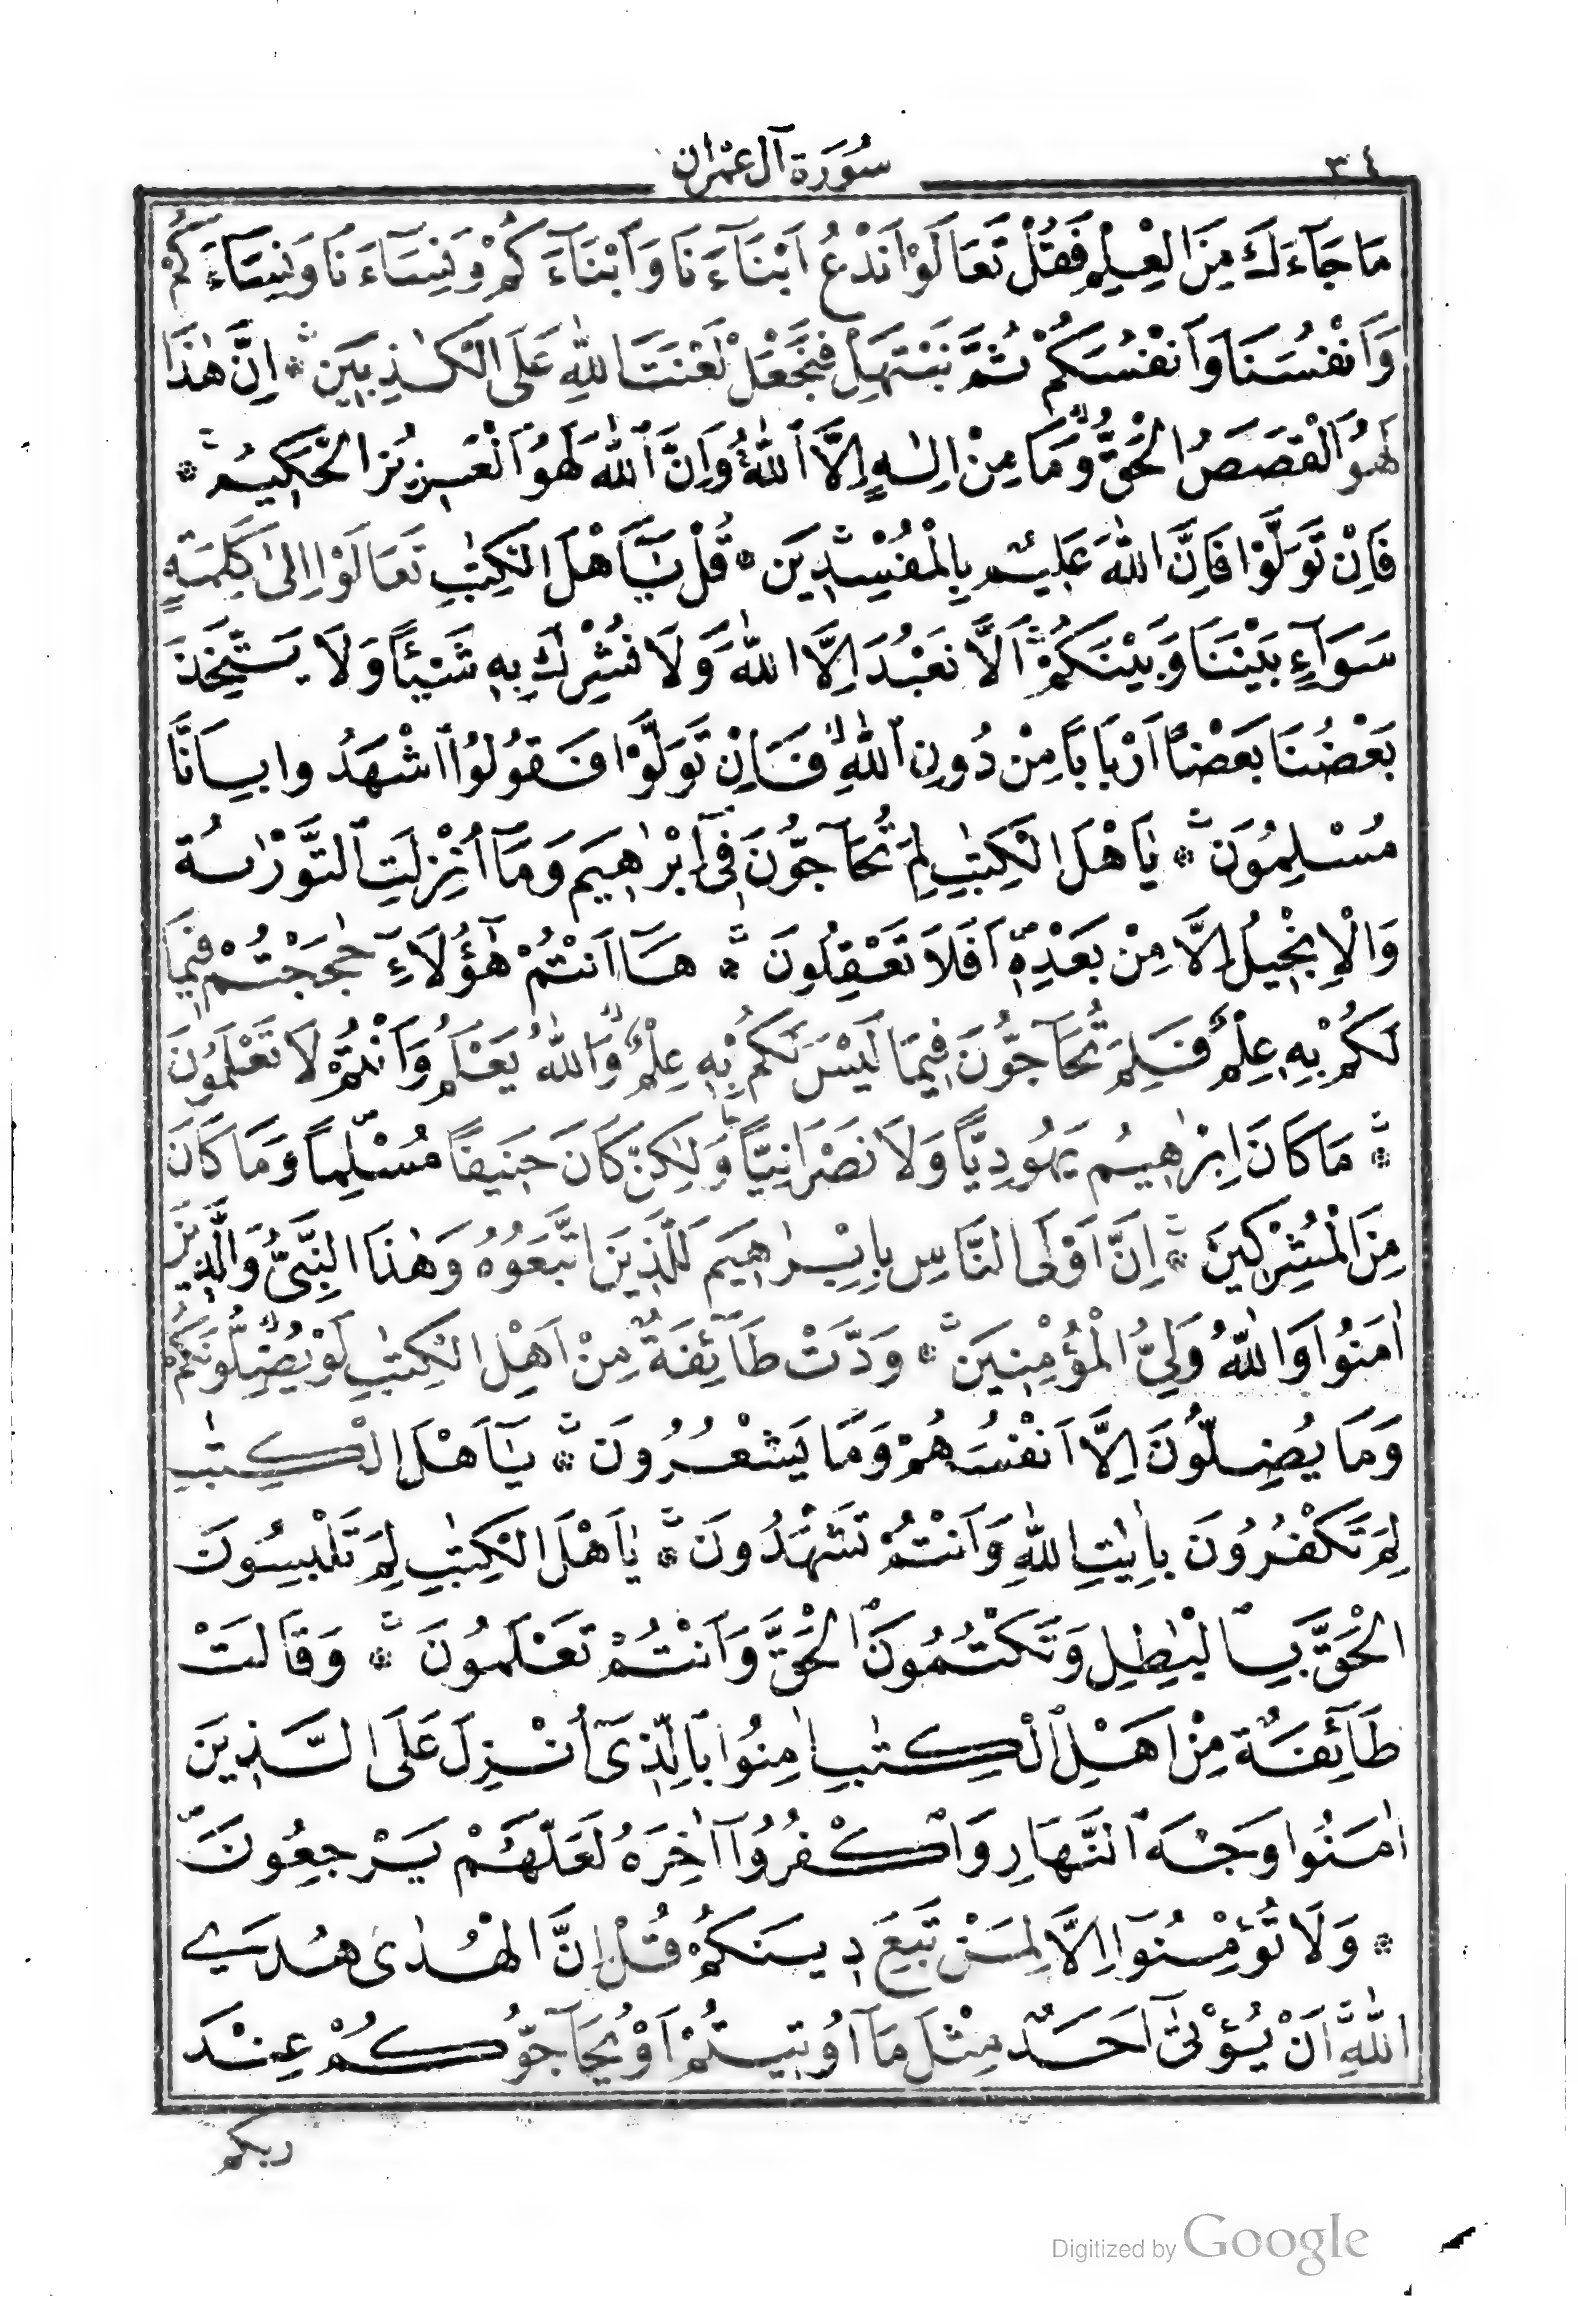 ٣٤
سُورَة آل عمران
مَا جَآءَكَ مِنَ الْعِلْمِ فَقُلْ تَعَالَوْا نَدْعُ اَبْنَآءَنَا وَاَبْنَآءَكُمْ وَنِسَآءَنَا وَنِسَآءَكُمْ
وَاَنْفُسَنَا وَاَنْفُسَكُمْ ثُمَّ نَبْتَهِلْ فَنَجْعَلْ لَعْنَتَ اللّٰهِ عَلَى الْكٰذِبِينَ ۞ اِنَّ هٰذَا
لَهُوَ الْقَصَصُ الْحَقُّ وَمَا مِنْ اِلٰهٍ اِلَّا اللّٰهُ وَاِنَّ اللّٰهَ لَهُوَ الْعَزِيزُ الْحَكِيمُ ۞
فَاِنْ تَوَلَّوْا فَاِنَّ اللّٰهَ عَلِيمٌ بِالْمُفْسِدِينَ ۞ قُلْ يَٓا اَهْلَ الْكِتٰبِ تَعَالَوْا اِلٰى كَلِمَةٍ
سَوَآءٍ بَيْنَنَا وَبَيْنَكُمْ اَلَّا نَعْبُدَ اِلَّا اللّٰهَ وَلَا نُشْرِكَ بِهٖ شَيْئًا وَلَا يَتَّخِذَ
بَعْضُنَا بَعْضًا اَرْبَابًا مِنْ دُونِ اللّٰهِ فَاِنْ تَوَلَّوْا فَقُولُوا اشْهَدُوا بِاَنَّا
مُسْلِمُونَ ۞ يَٓا اَهْلَ الْكِتٰبِ لِمَ تُحَآجُّونَ فِٓى اِبْرٰهِيمَ وَمَٓا اُنْزِلَتِ التَّوْرٰىةُ
وَالْاِنْجِيلُ اِلَّا مِنْ بَعْدِهٖ اَفَلَا تَعْقِلُونَ ۞ هَٓا اَنْتُمْ هٰٓؤُلَآءِ حٰجَجْتُمْ فِيمَا
لَكُمْ بِهٖ عِلْمٌ فَلِمَ تُحَآجُّونَ فِيمَا لَيْسَ لَكُمْ بِهٖ عِلْمٌ وَاللّٰهُ يَعْلَمُ وَاَنْتُمْ لَا تَعْلَمُونَ
۞ مَا كَانَ اِبْرٰهِيمُ يَهُودِيًّا وَلَا نَصْرَانِيًّا وَلٰكِنْ كَانَ حَنِيفًا مُسْلِمًا وَمَا كَانَ
مِنَ الْمُشْرِكِينَ ۞ اِنَّ اَوْلَى النَّاسِ بِاِبْرٰهِيمَ لَلَّذِينَ اتَّبَعُوهُ وَهٰذَا النَّبِىُّ وَالَّذِينَ
اٰمَنُوا وَاللّٰهُ وَلِىُّ الْمُؤْمِنِينَ ۞ وَدَّتْ طَآئِفَةٌ مِنْ اَهْلِ الْكِتٰبِ لَوْ يُضِلُّونَكُمْ
وَمَا يُضِلُّونَ اِلَّا اَنْفُسَهُمْ وَمَا يَشْعُرُونَ ۞ يَٓا اَهْلَ الْكِتٰبِ
لِمَ تَكْفُرُونَ بِاٰيٰتِ اللّٰهِ وَاَنْتُمْ تَشْهَدُونَ ۞ يَٓا اَهْلَ الْكِتٰبِ لِمَ تَلْبِسُونَ
الْحَقَّ بِالْبٰطِلِ وَتَكْتُمُونَ الْحَقَّ وَاَنْتُمْ تَعْلَمُونَ ۞ وَقَالَتْ
طَآئِفَةٌ مِنْ اَهْلِ الْكِتٰبِ اٰمِنُوا بِالَّذِٓى اُنْزِلَ عَلَى الَّذِينَ
اٰمَنُوا وَجْهَ النَّهَارِ وَاكْفُرُٓوا اٰخِرَهُ لَعَلَّهُمْ يَرْجِعُونَ
۞ وَلَا تُؤْمِنُٓوا اِلَّا لِمَنْ تَبِعَ دِينَكُمْ قُلْ اِنَّ الْهُدٰى هُدَى
اللّٰهِ اَنْ يُؤْتٰٓى اَحَدٌ مِثْلَ مَٓا اُوتِيتُمْ اَوْ يُحَآجُّوكُمْ عِنْدَ
ربكم
Digitized by Google